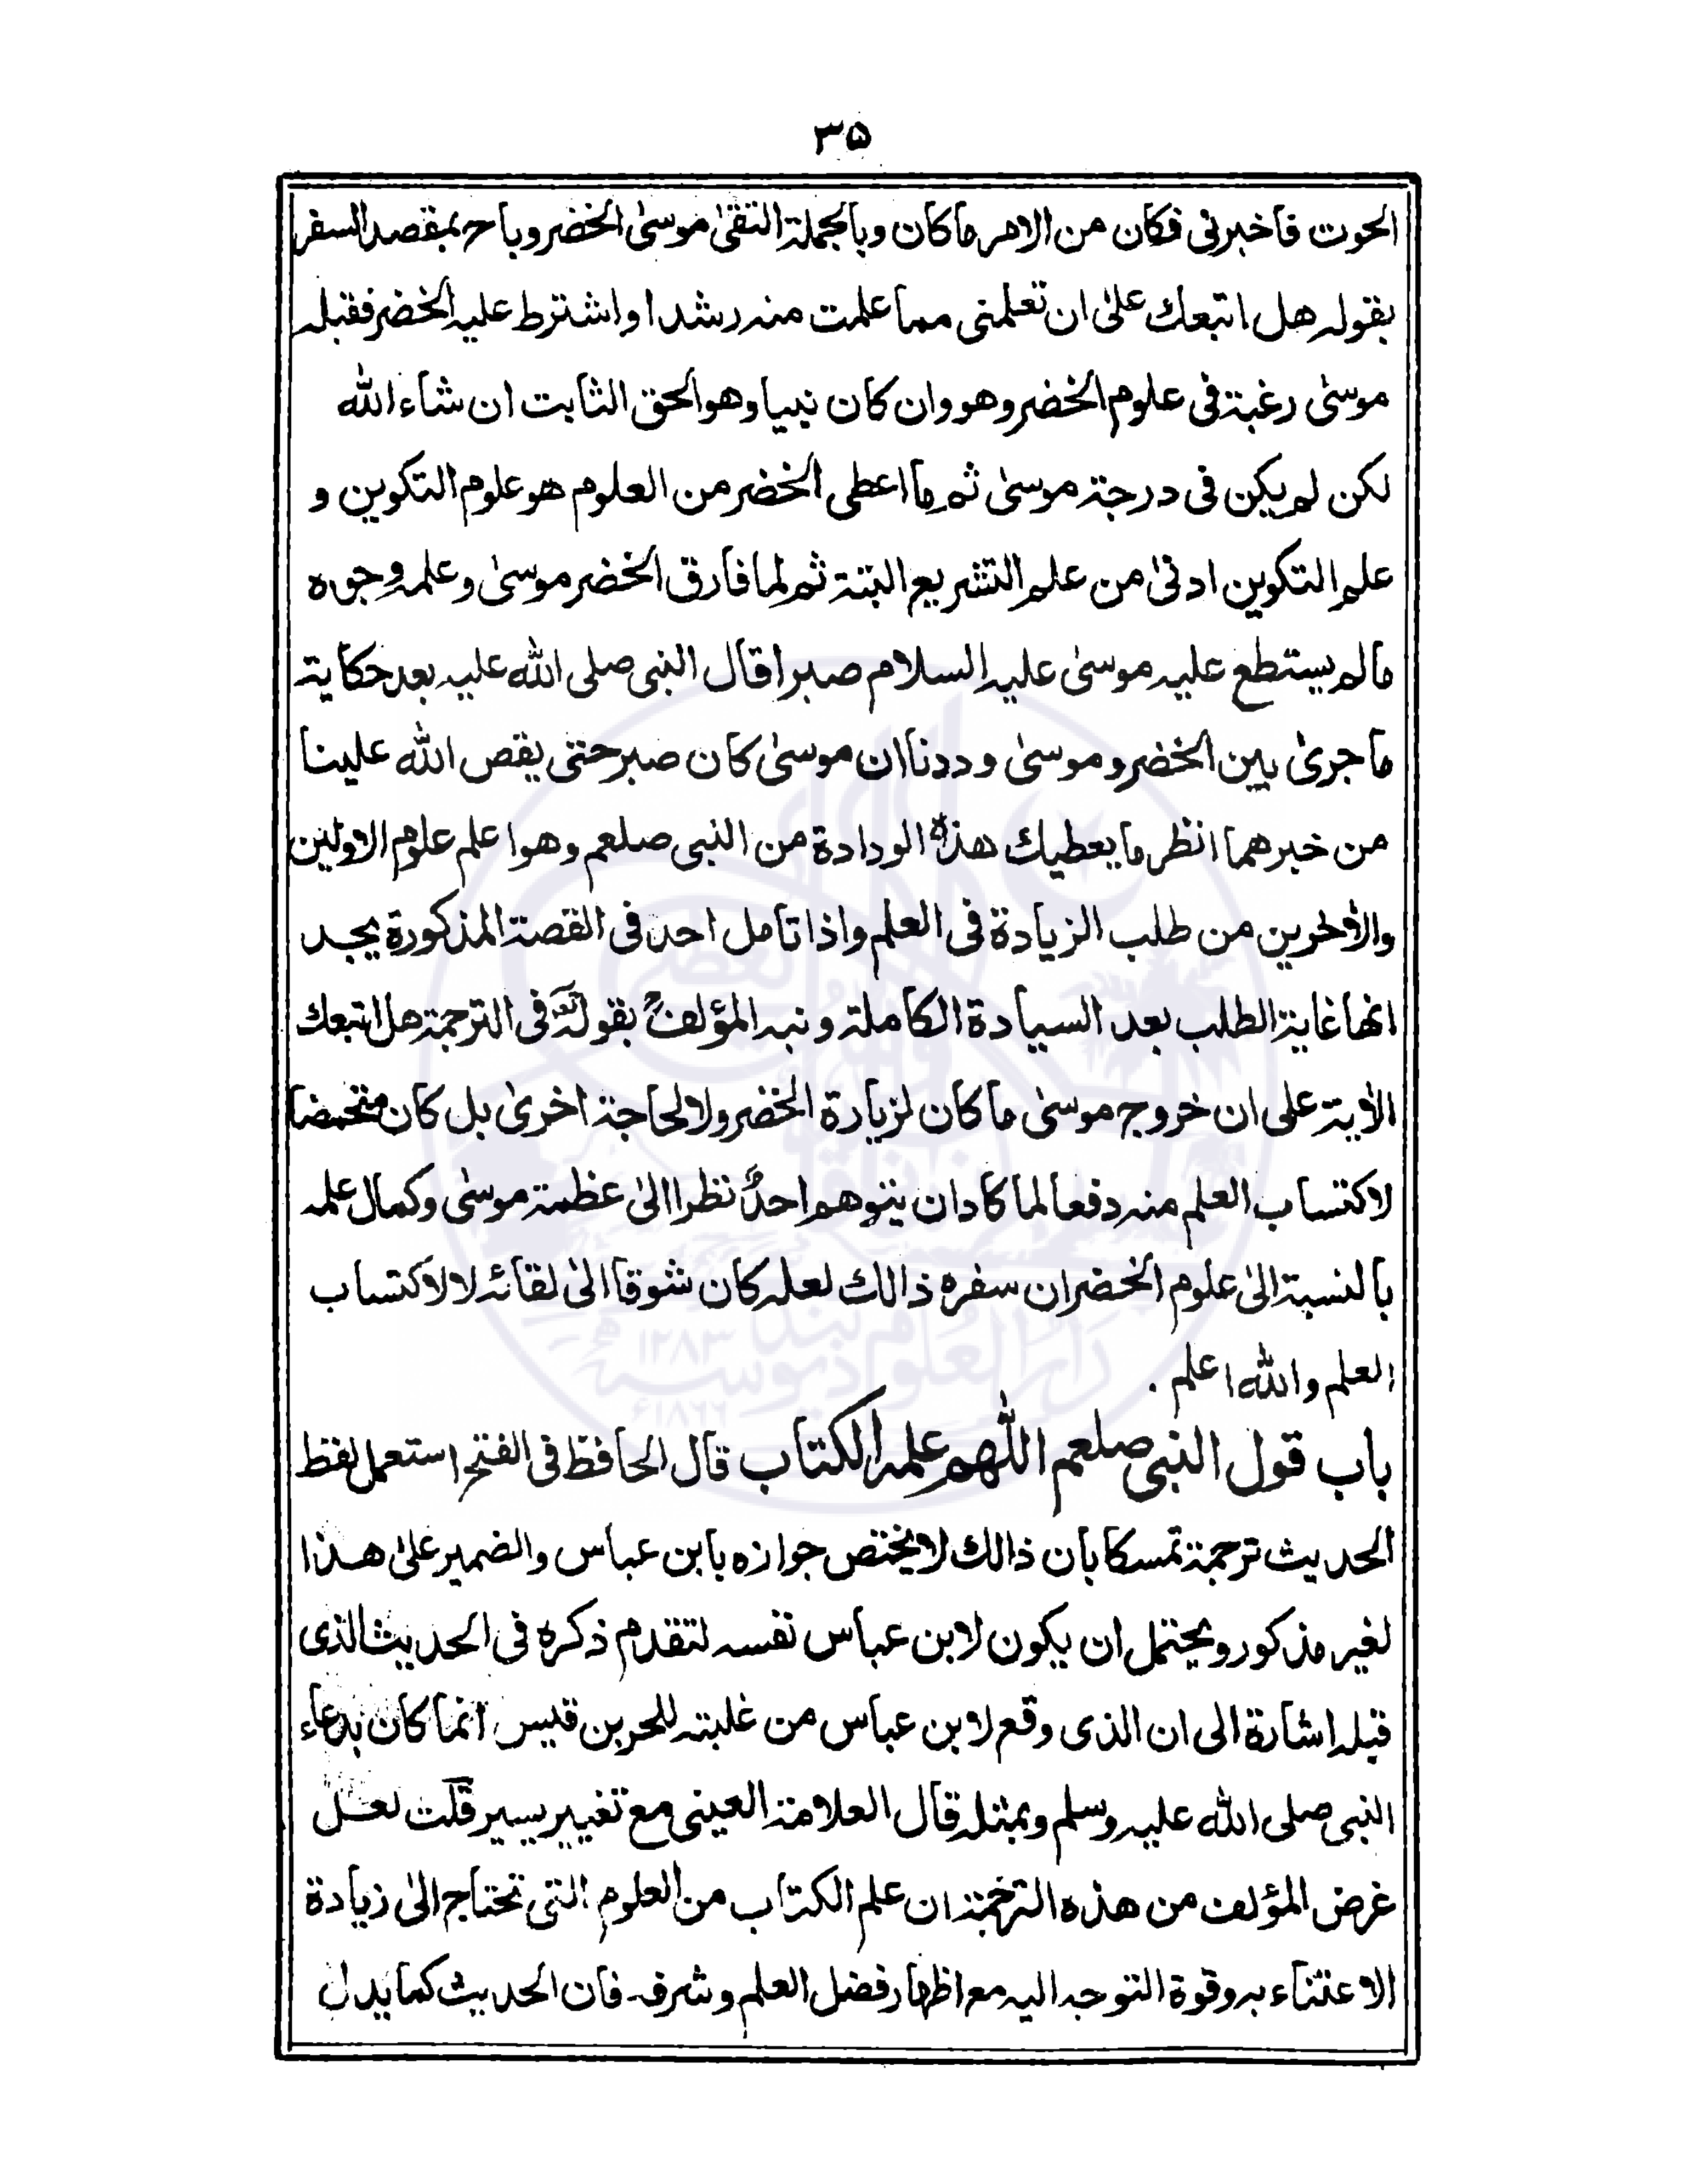 ۳۵
الحوت فاخبرنی فکان من الامر ما کان وبالجملۃ التقیٰ موسیٰ الخضر وباح بمقصد السفر
بقولہ ھل اتبعك علیٰ ان تعلمنی مما علمت منہ رشدا واشترط علیہ الخضر فقبلہ
موسیٰ رغبۃ فی علوم الخضر وھو وان کان نبیا وھو الحق الثابت ان شاء اللّٰہ
لکن لم یکن فی درجۃ موسیٰ ثم ما اعطی الخضر من العلوم ھو علوم التکوین و
علم التکوین ادنیٰ من علم التشریع البتۃ ثم لما فارق الخضر موسیٰ وعلمہ وجوہ
ما لم یستطع علیہ موسیٰ علیہ السلام صبرا قال النبی صلی اللّٰہ علیہ بعد حکایۃ
ما جریٰ بین الخضر و موسیٰ وددنا ان موسیٰ کان صبر حتی یقص اللّٰہ علینا
من خبرھما انظر ما یعطیك ھذہ الودادۃ من النبی صلعم وھو اعلم علوم الاولین
والاٰخرین من طلب الزیادۃ فی العلم واذا تامل احد فی القصۃ المذکورۃ یجد
انھا غایۃ الطلب بعد السیادۃ الکاملۃ ونبہ المؤلفؒ بقولہ فی الترجمۃ ھل اتبعك
الاٰیۃ علی ان خروج موسیٰ ما کان لزیارۃ الخضر ولا لحاجۃ اخریٰ بل کان متمحضا
لاکتساب العلم منہ دفعا لما کاد ان یتوھم احدٌ نظرا الیٰ عظمۃ موسیٰ وکمال علمہ
بالنسبۃ الیٰ علوم الخضر ان سفرہ ذالك لعلہ کان شوقا الیٰ لقائہ لا لاکتساب
العلم واللّٰہ اعلم .
باب قول النبی صلعم اللّٰھم علمہ الکتاب قال الحافظ فی الفتح استعمل لفظ
الحدیث ترجمۃ تمسکا بان ذالك لا یختص جوازہ بابن عباس والضمیر علیٰ ھذا
لغیر مذکور ویحتمل ان یکون لابن عباس نفسہ لتقدم ذکرہ فی الحدیث الذی
قبلہ اشارۃ الی ان الذی وقع لابن عباس من غلبتہ للحر بن قیس انما کان بدعاء
النبی صلی اللّٰہ علیہ وسلم وبمثلہ قال العلامۃ العینی مع تغییر یسیر قلت لعل
غرض المؤلف من ھذہ الترجمۃ ان علم الکتاب من العلوم التی تحتاج الیٰ زیادۃ
الاعتناء بہ وقوۃ التوجہ الیہ مع اظہار فضل العلم وشرفہ فان الحدیث کما یدل